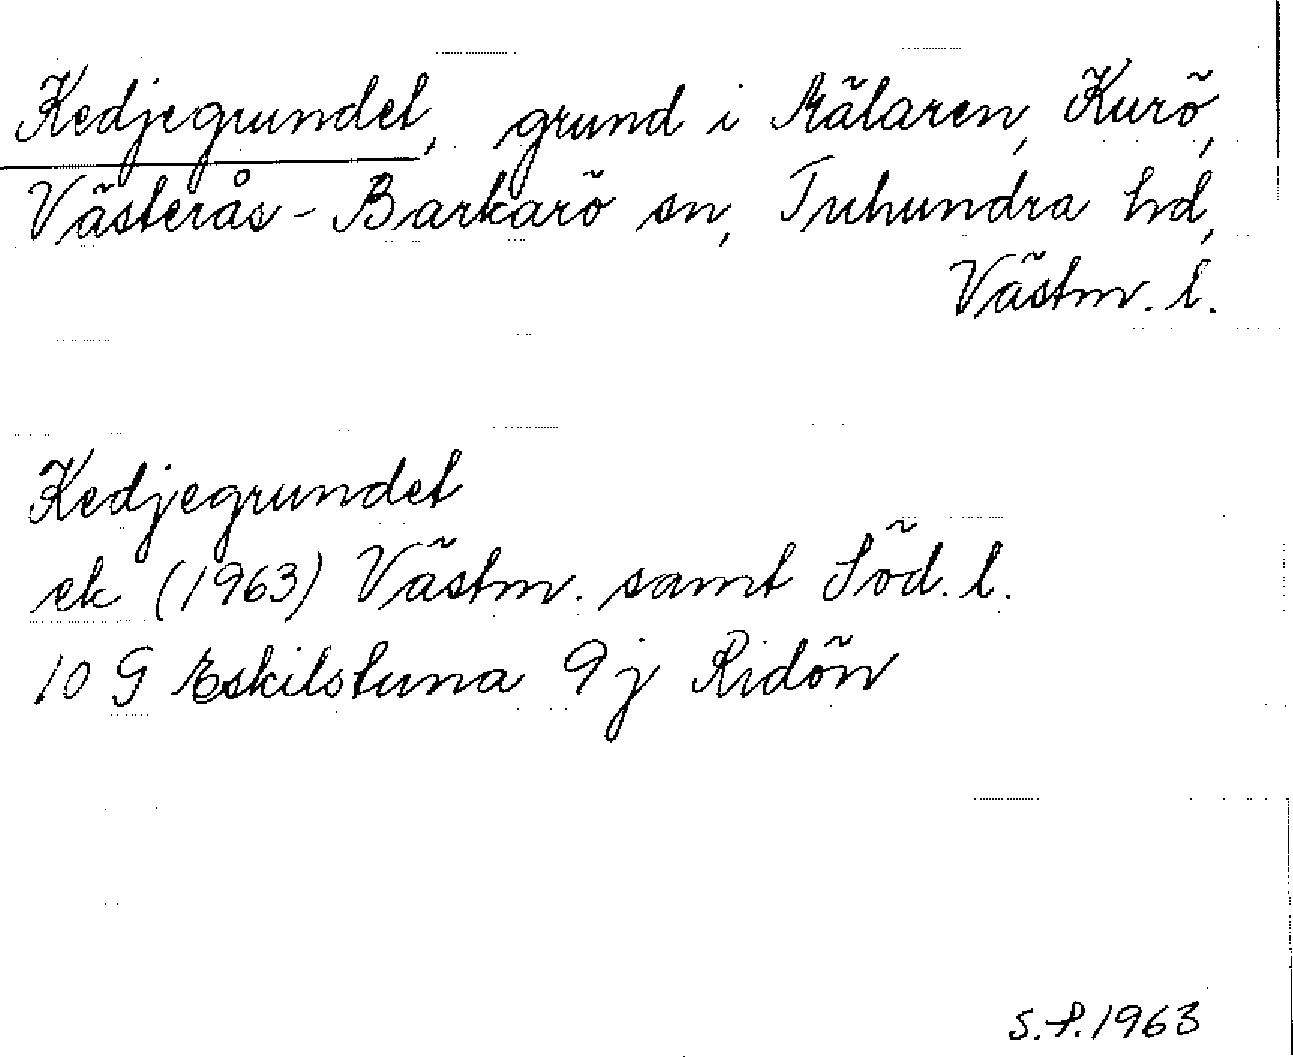 Kedjegrundet, grund i Mälaren, Kurö,
Västerås-Barkarö sn, Tuhundra hd,
Västm. l.
Kedjegrundet
ek (1963) Västm. samt Söd. l.
10 G Eskilstuna 9j Ridön
S.P. 1963